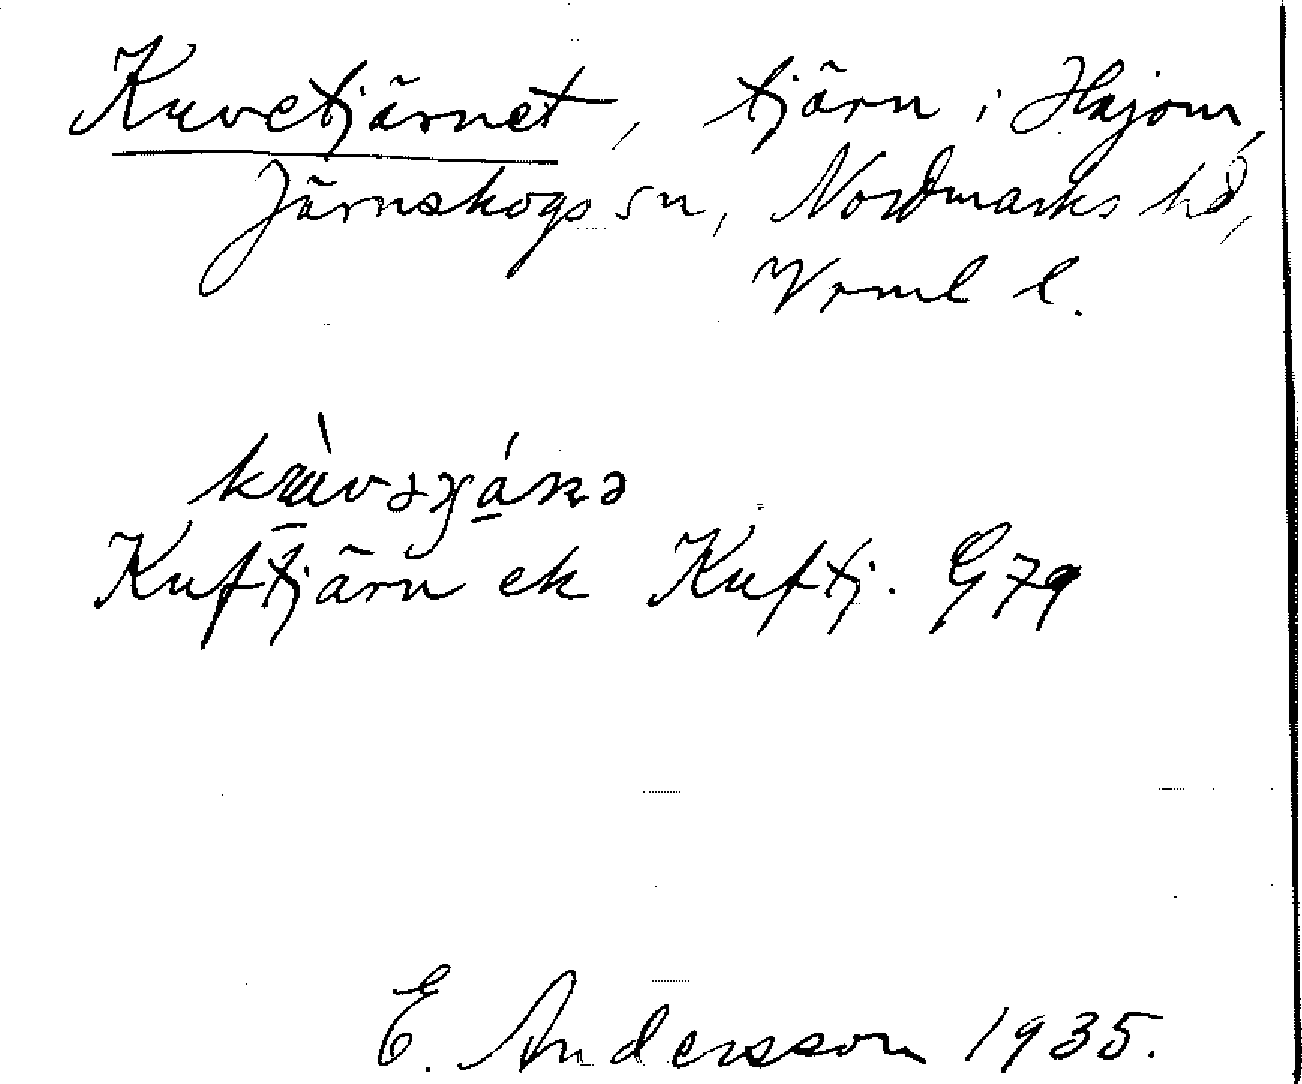 Kuvetjärnet, tjärn i Häjom,
Järnskogs sn, Nordmarks hd,
Vrml l.
Kuftjärn ek Kuftj. G79
E. Andersson 1935.